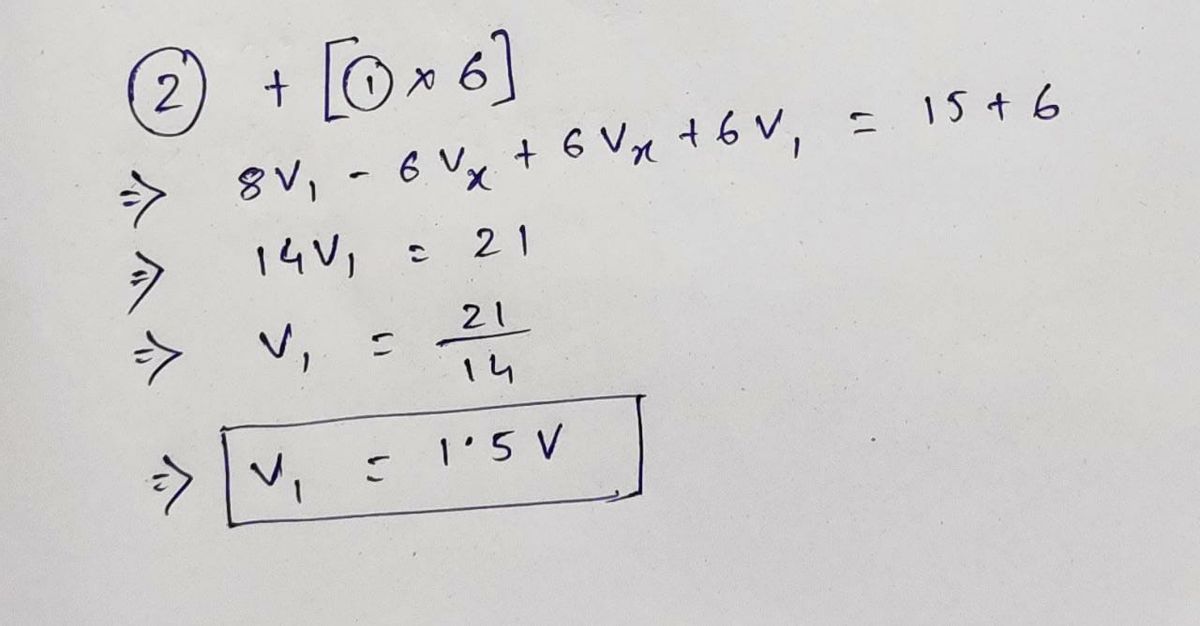 ② + [① × 6]
⇒ 8V₁ - 6Vₓ + 6Vₓ + 6V₁ = 15 + 6
⇒ 14V₁ = 21
⇒ V₁ = 21/14
⇒ V₁ = 1.5 V